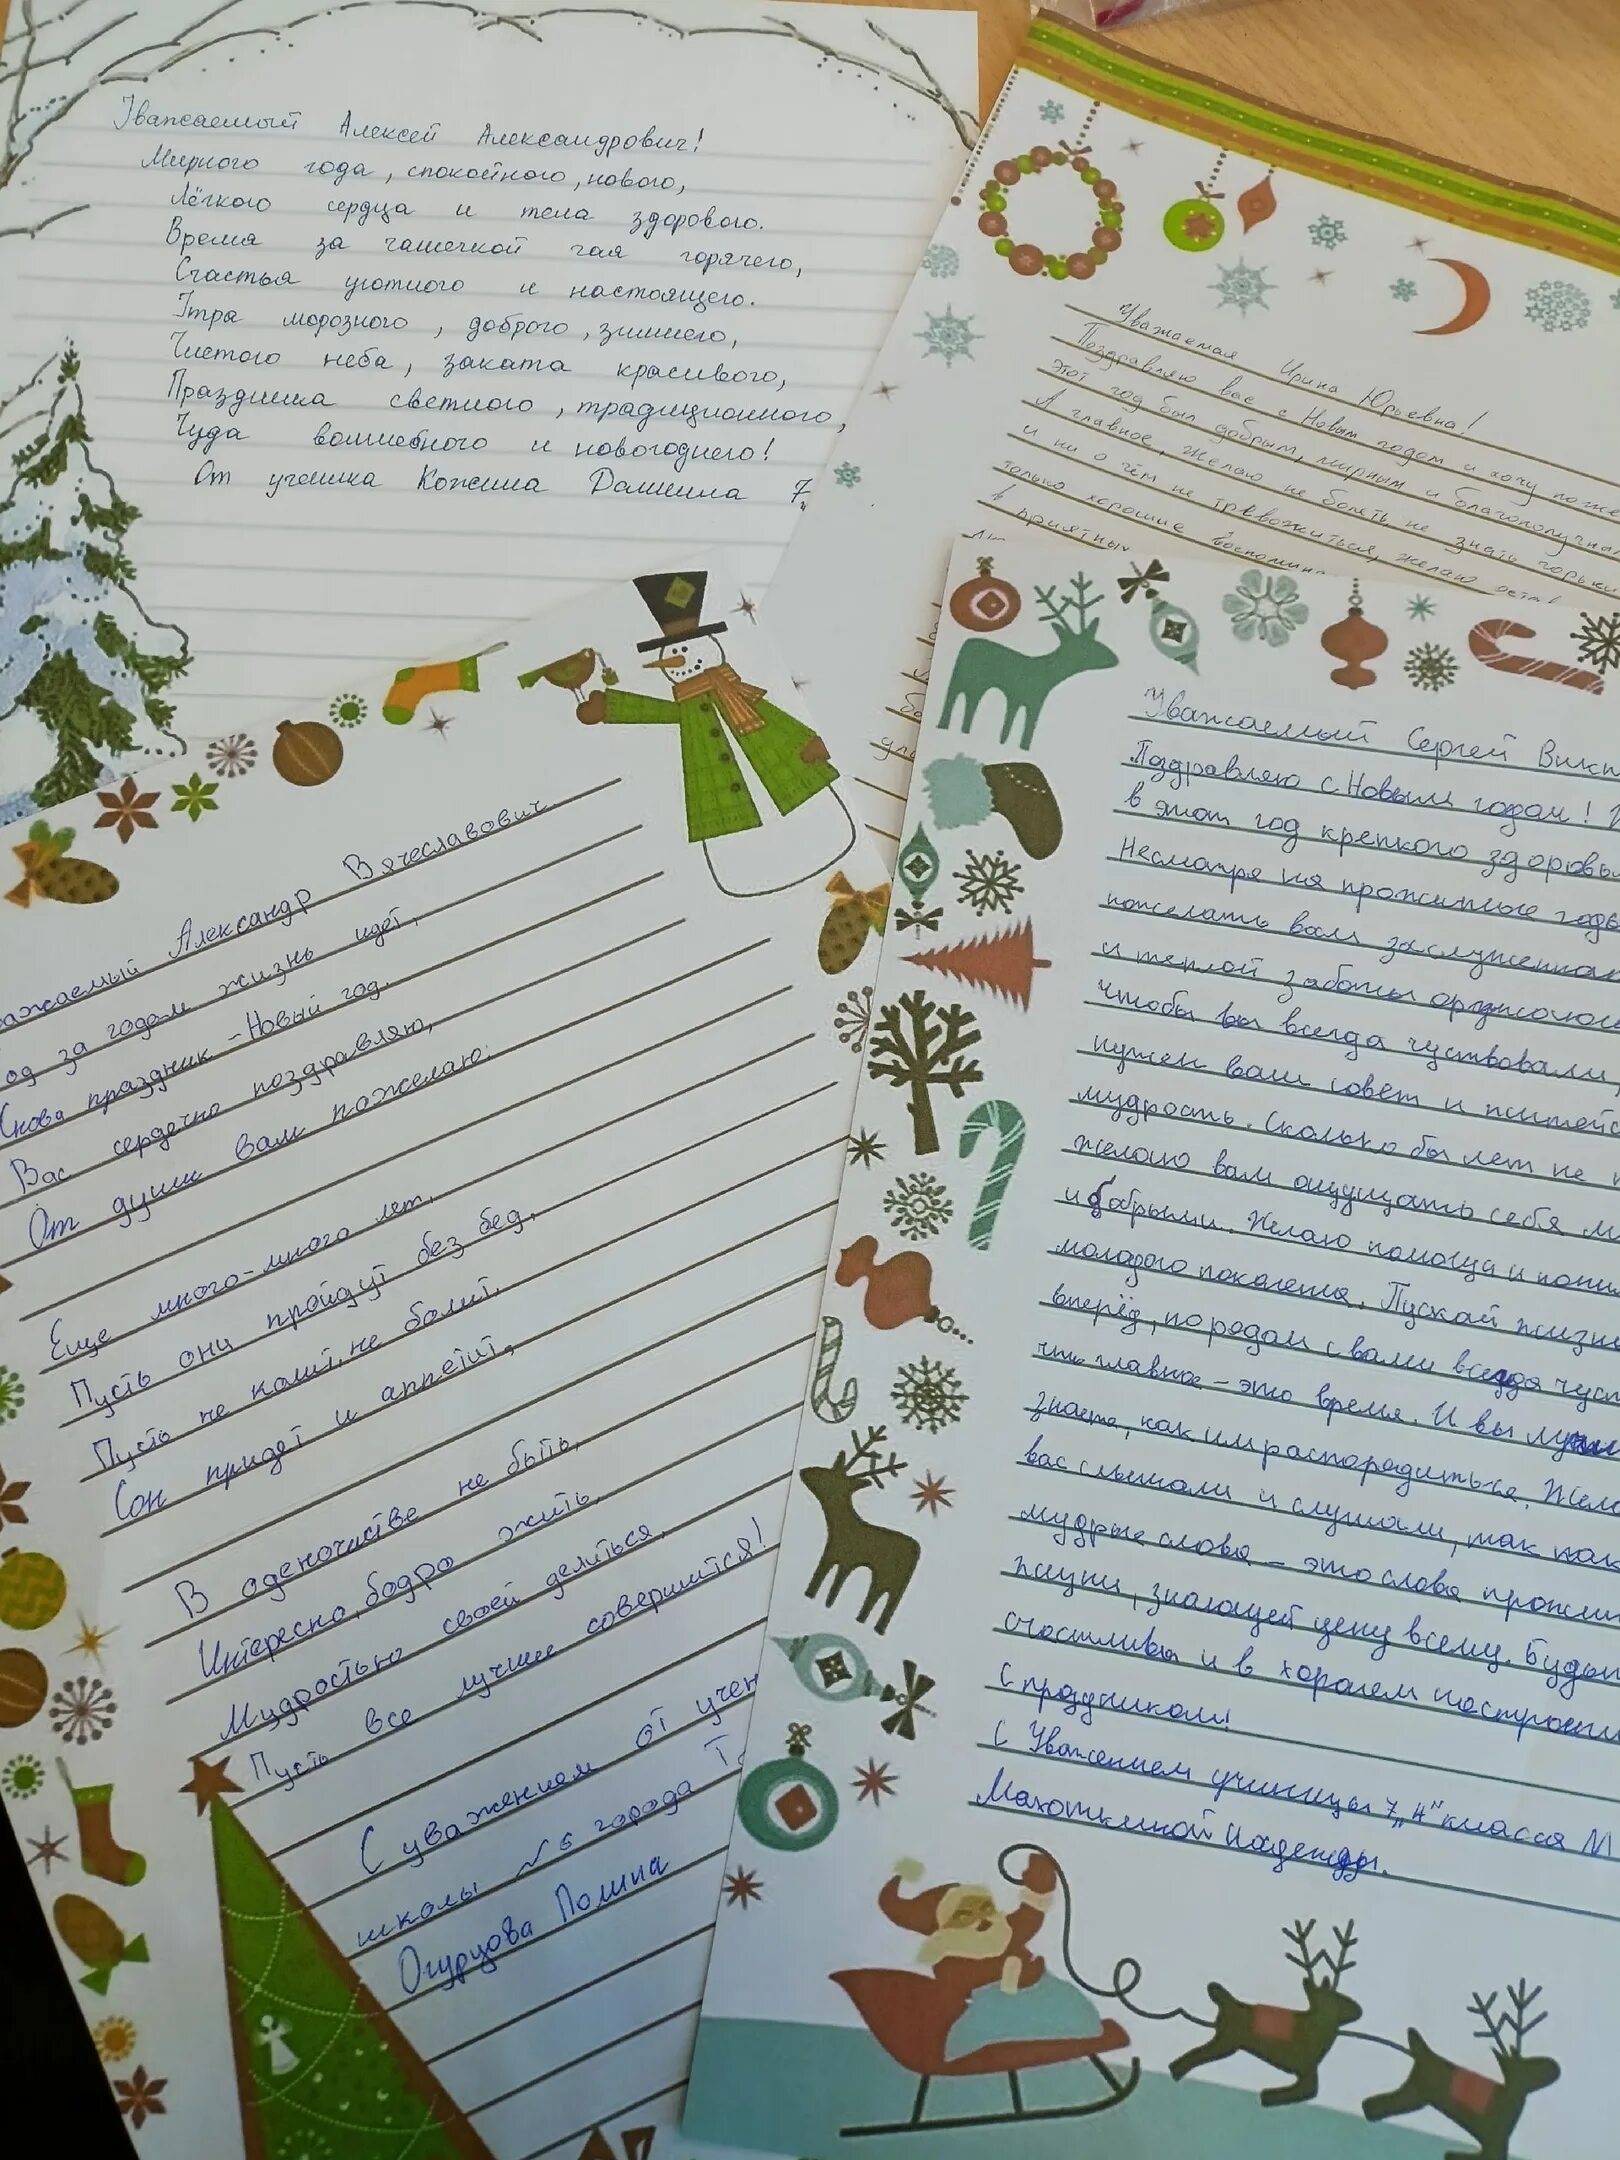 Уважаемый Алексей Александрович!
Мирного года, спокойного, нового,
Лёгкого сердца и тела здорового.
Время за чашечкой чая горячего,
Счастья уютного и настоящего.
Утра морозного, доброго, зимнего,
Чистого неба, заката красивого,
Праздника светлого, традиционного,
Чуда волшебного и новогоднего!
От ученика Кожина Даниила 7
Уважаемая Ирина Юрьевна!
Поздравляю вас с Новым годом и хочу поже
этот год был добрым, мирным и благополучн
А главное, желаю не болеть, не знать горьк
и ни о чём не тревожиться, желаю оста
только хорошие воспомина
в приятны
ажаемый Александр Вячеславович
од за годом жизнь идёт,
Снова праздник - Новый год.
Вас сердечно поздравляю,
От души вам пожелаю:
Еще много-много лет,
Пусть они пройдут без бед,
Пусть не колит, не болит,
Сон придет и аппетит,
В оденочистве не быть,
Интересно, бодро жить,
Мудростью своей делиться,
Пусть все лучшие совершится!
С уважением от учен
школы №6 города Т
Огурцова Полина
Уважаемый Сергей Викт
Поздравляю с Новым годом!
в этот год крепкого здоровь
Несмотря на прожитые годы
пожелать вам заслуженно
и теплой заботы
чтобы вы всегда чуствовали,
нужен ваш совет и житейс
мудрость. Сколько бы лет не
желаю вам ощущать себя м
и добрыми. Желаю помощи и пони
молодого поколения. Пускай жизн
вперёд, но рядом с вами всегда чус
что главное - это время. И вы
знаете, как им распорядиться. Жела
вас слышали и слушали, так как
мудрые слова - это слова прожи
жизни, знающей цену всему. Будь
счастливы и в хорошем настроени
С праздником!
С Уважением ученицы 7 „Ч" класса М
Махоткиной Надежды.